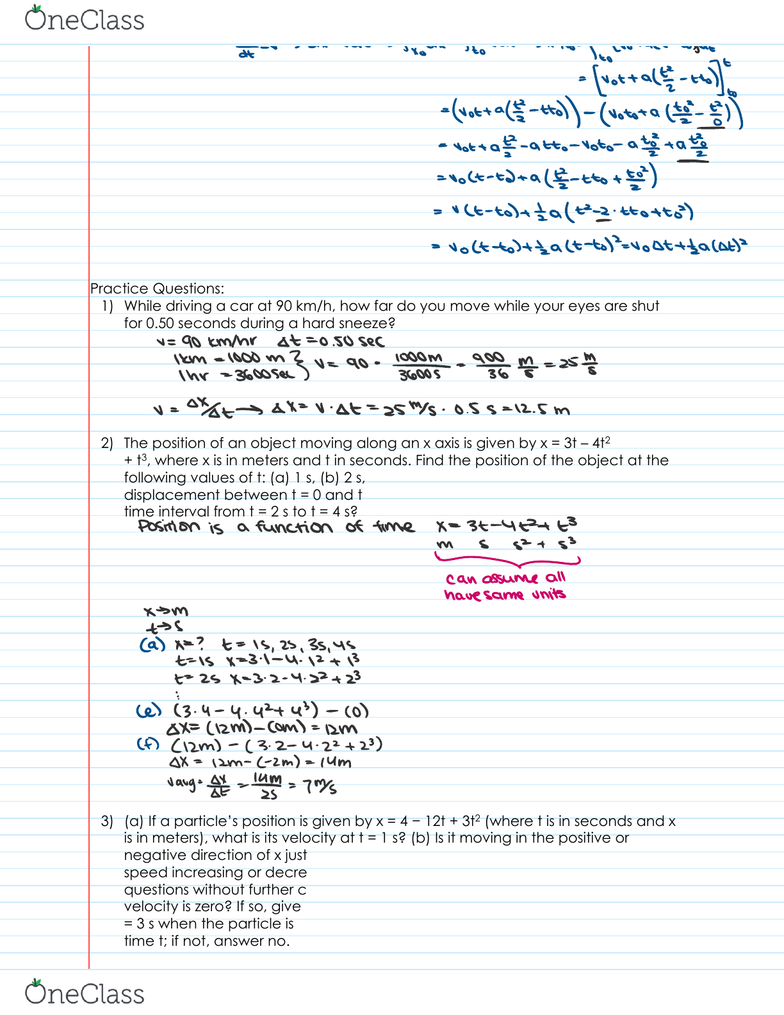 OneClass
dt
= [v₀t + a(t²/2 - tt₀)]ᵗt₀
= (v₀t + a(t²/2 - tt₀)) - (v₀t₀ + a(t₀²/2 - t₀²/0))
= v₀t + a t²/2 - att₀ - v₀t₀ - a t₀²/2 + a t₀²/2
= v₀(t-t₀) + a(t²/2 - tt₀ + t₀²/2)
= v(t-t₀) + ½a(t² - 2·tt₀ + t₀²)
= v₀(t-t₀) + ½a(t-t₀)² = v₀Δt + ½a(Δt)²
Practice Questions:
1) While driving a car at 90 km/h, how far do you move while your eyes are shut
for 0.50 seconds during a hard sneeze?
v = 90 km/hr Δt = 0.50 sec
1km = 1000 m } v = 90 · 1000m/3600s = 900/36 m/s = 25 m/s
1hr = 3600sec
v = Δx/Δt → Δx = v·Δt = 25 m/s · 0.5 s = 12.5 m
2) The position of an object moving along an x axis is given by x = 3t – 4t²
+ t³, where x is in meters and t in seconds. Find the position of the object at the
following values of t: (a) 1 s, (b) 2 s,
displacement between t = 0 and t
time interval from t = 2 s to t = 4 s?
Position is a function of time x = 3t-4t²+t³
m s s² + s³
can assume all
have same units
x→m
t→s
(a) x=? t= 1s, 2s, 3s, 4s
t=1s x=3·1-4·1²+1³
t=2s x=3·2-4·2²+2³
⋮
(e) (3·4-4·4²+4³)-(0)
Δx= (12m)-(0m) = 12m
(f) (12m)-(3·2-4·2²+2³)
Δx = 12m-(-2m) = 14m
vavg = Δx/Δt = 14m/2s = 7m/s
3) (a) If a particle’s position is given by x = 4 − 12t + 3t² (where t is in seconds and x
is in meters), what is its velocity at t = 1 s? (b) Is it moving in the positive or
negative direction of x just
speed increasing or decre
questions without further c
velocity is zero? If so, give
= 3 s when the particle is
time t; if not, answer no.
OneClass